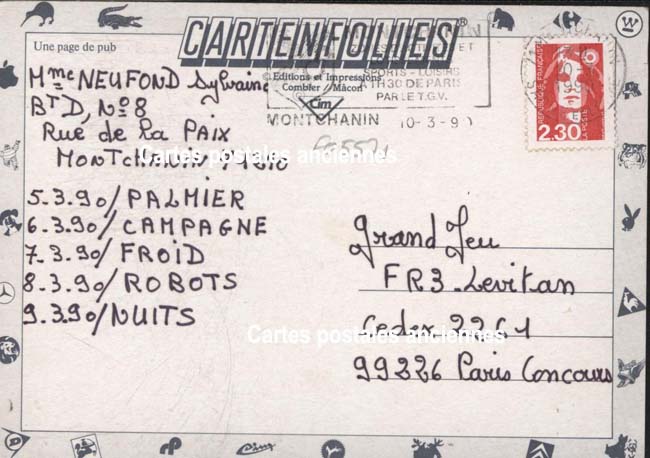 CARTENFOLIES®
Une page de pub
© Editions et Impressions
Combier Mâcon
Cim
Mme NEUFOND Sylvaine
BTD, No 8
Rue de la PAIX
MONTCHANIN 71210
5.3.90/ PALMIER
6.3.90/ CAMPAGNE
7.3.90/ FROID
8.3.90/ ROBOTS
9.3.90/ NUITS
SPORTS - LOISIRS
A 1H30 DE PARIS
PAR LE T.G.V.
MONTCHANIN 10-3-90
REPUBLIQUE FRANÇAISE
LA POSTE
2.30
Grand Jeu
FR3-Levitan
Cedex 2261
99226 Paris Concours
Cartes postales anciennes
Cartes postales anciennes
Cim